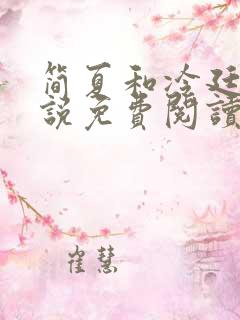 简夏和冷廷
說免費閱讀
崔慧